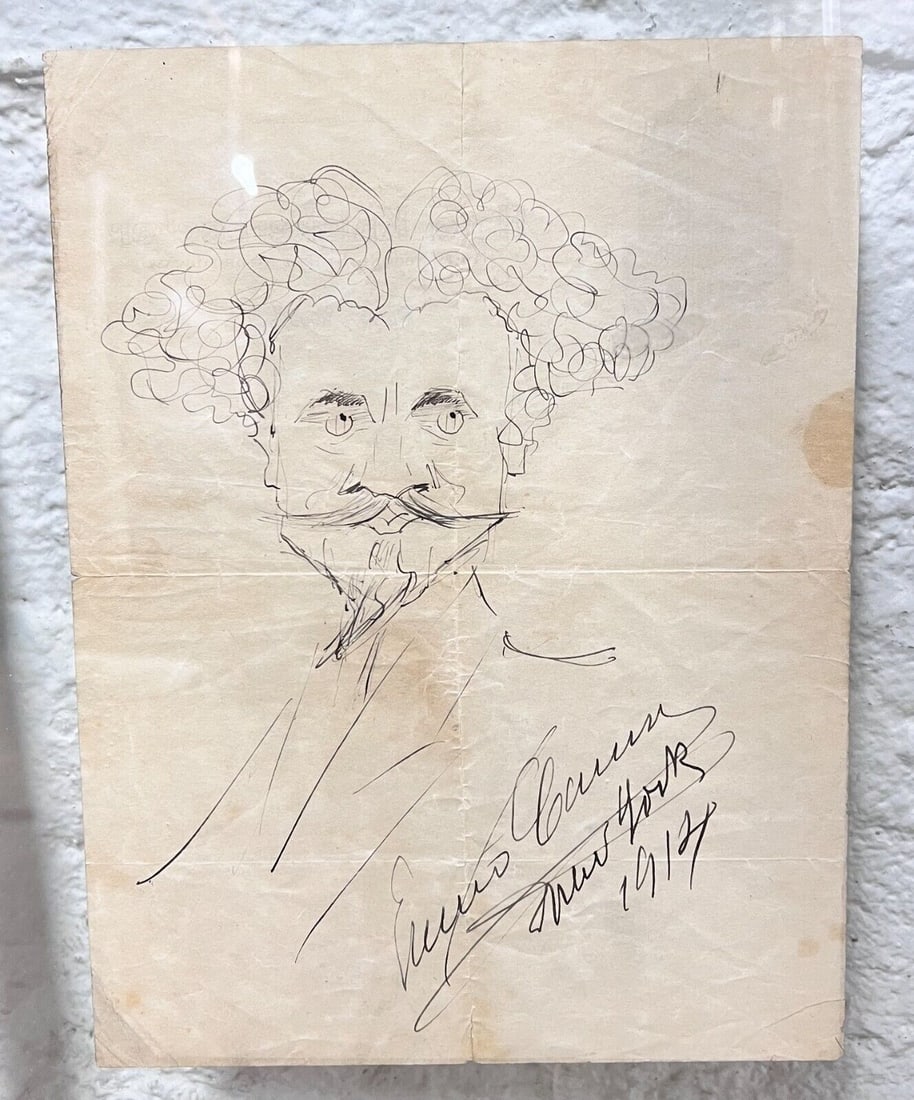 Enrico Caruso
New York
1914